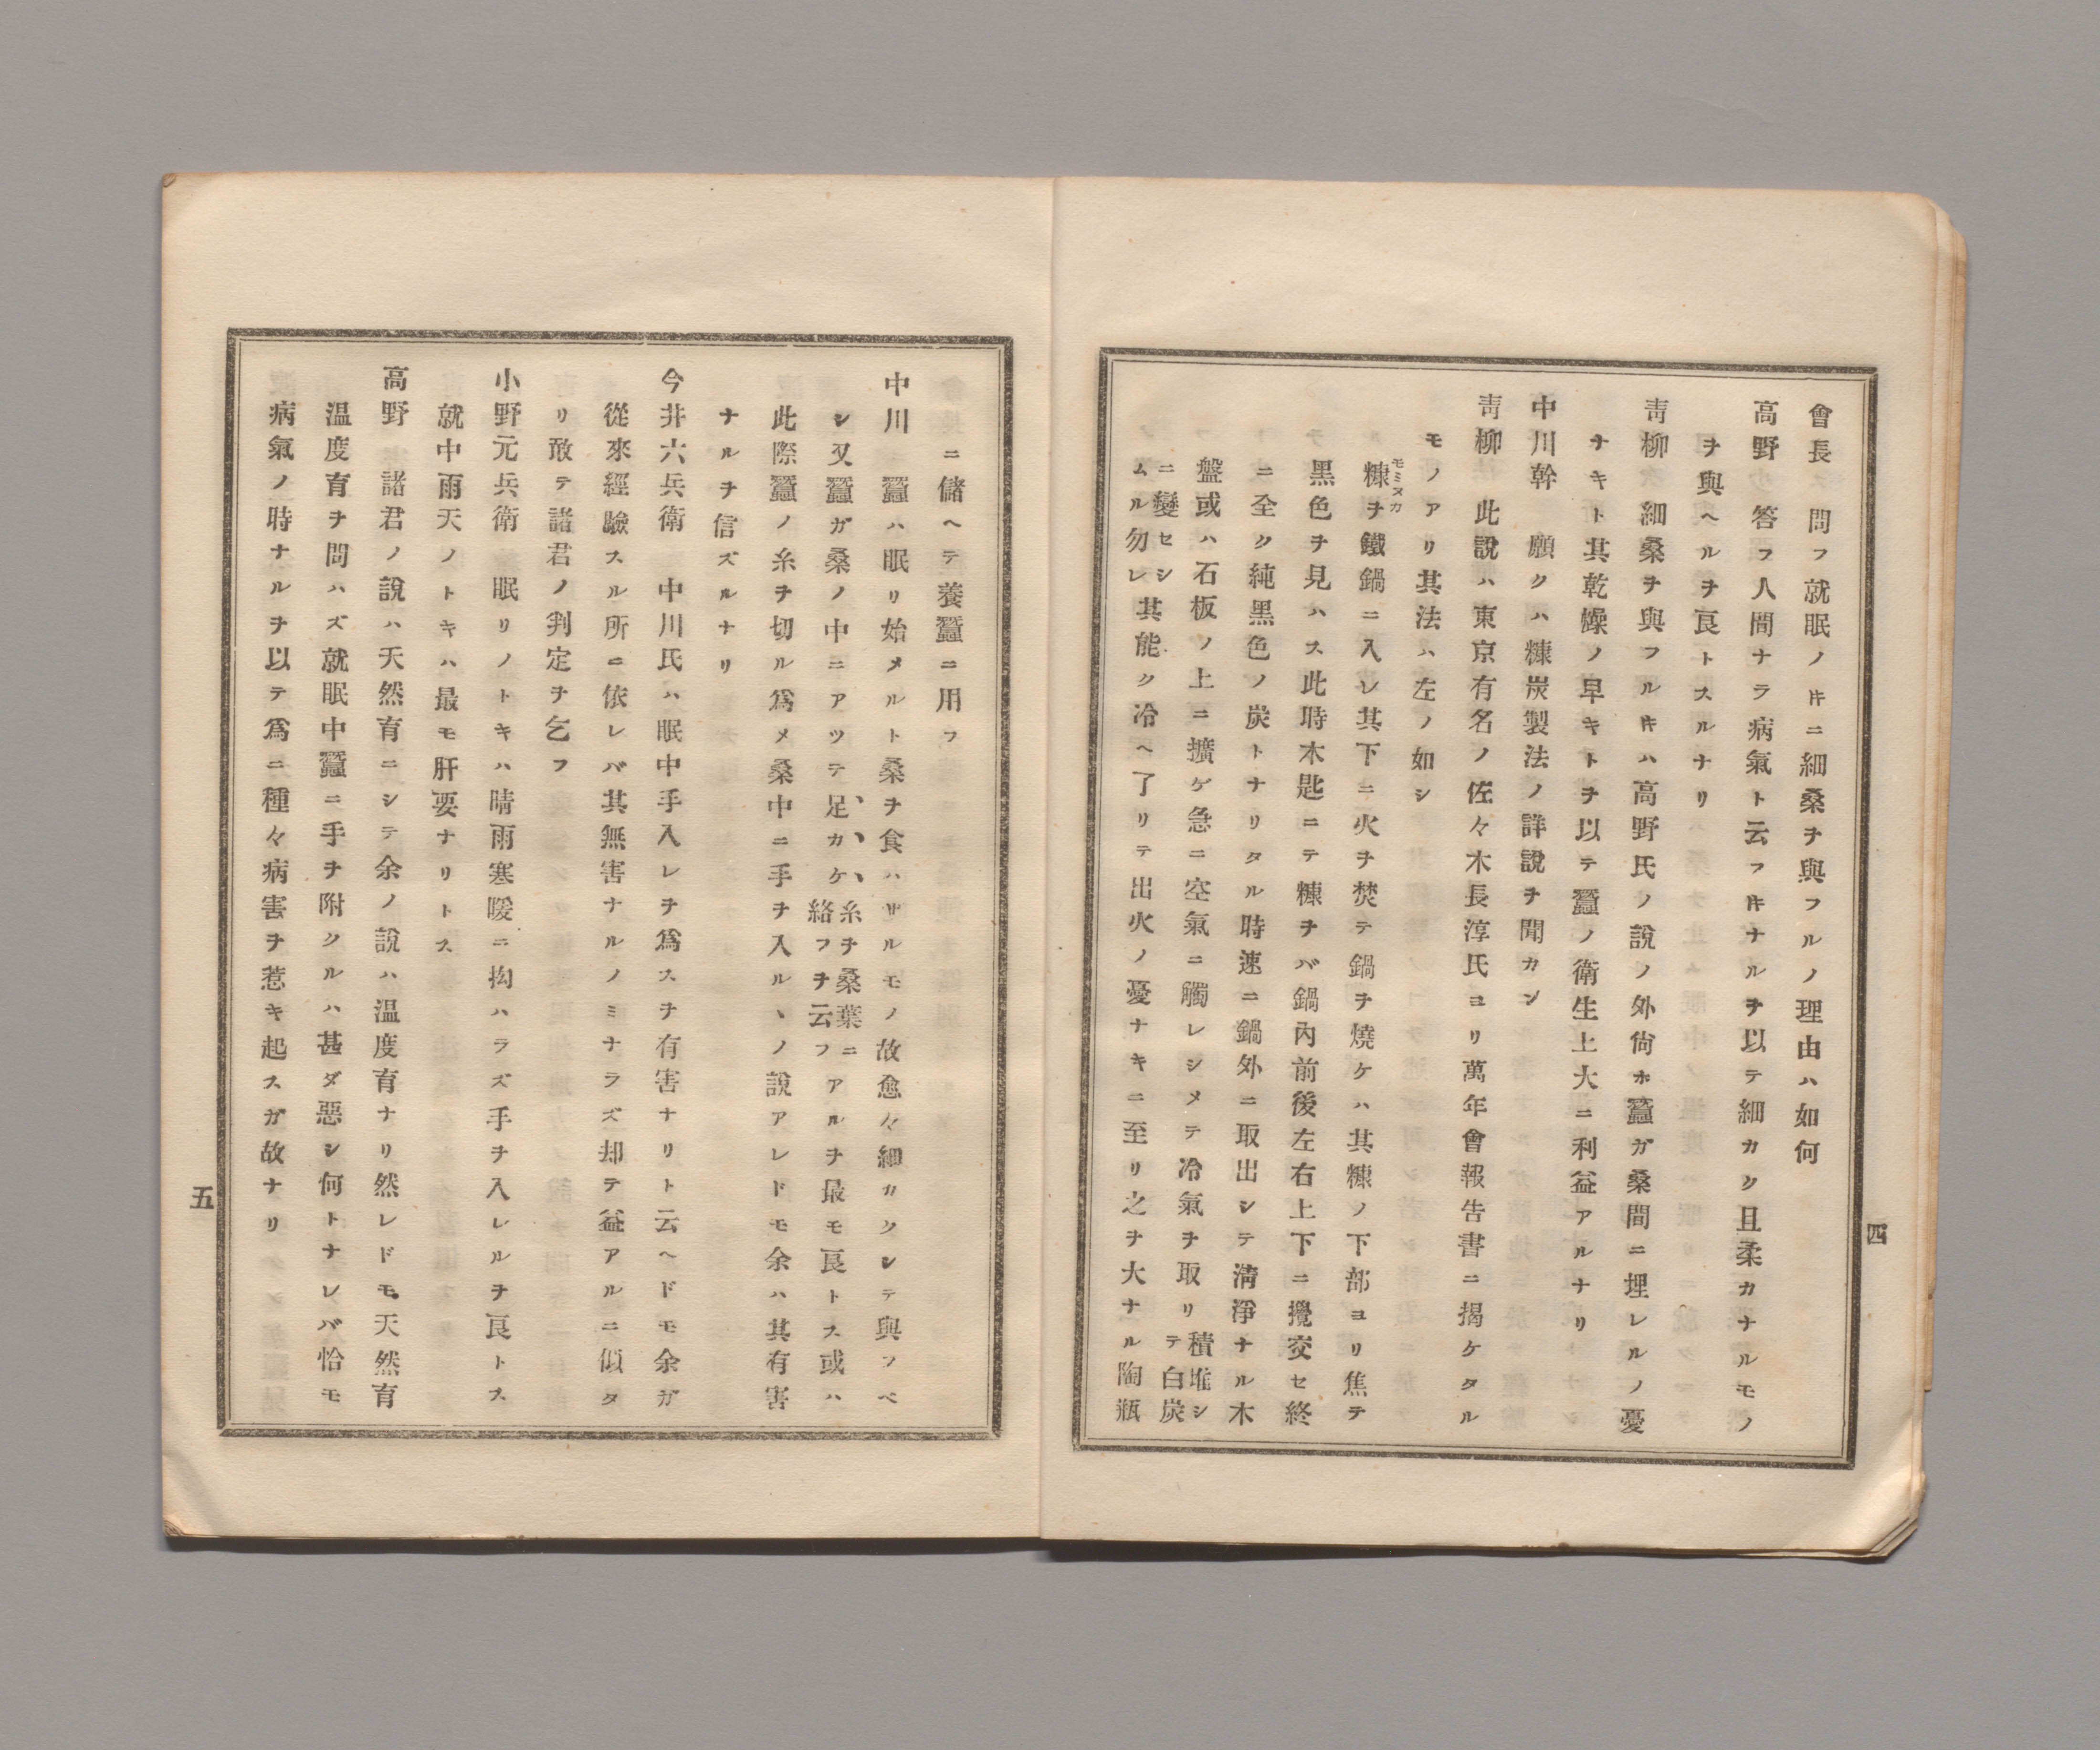 會長　問フ就眠ノ𪜈ニ細桑ヲ與フルノ理由ハ如何
高野　答フ人間ナラ病氣ト云フ𪜈ナルヲ以テ細カク且柔カナルモノ
ヲ與ヘルヲ良トスルナリ
靑柳　細桑ヲ與フル𪜈ハ高野氏ノ說ノ外尙ホ蠶ガ桑間ニ埋レルノ憂
ナキト其乾燥ノ早キトヲ以テ蠶ノ衛生上大ニ利益アルナリ
中川幹　願クハ糠炭製法ノ詳說ヲ聞カン
靑柳　此說ハ東京有名ノ佐々木長淳氏ヨリ萬年會報告書ニ揭ケタル
モノアリ其法ハ左ノ如シ
糠ヲ鐵鍋ニ入レ其下ニ火ヲ焚テ鍋ヲ燒ケハ其糠ノ下部ヨリ焦テ
モミヌカ
黑色ヲ見ハス此時木匙ニテ糠ヲバ鍋內前後左右上下ニ攪交セ終
ニ全ク純黑色ノ炭トナリタル時速ニ鍋外ニ取出シテ淸淨ナル木
盤或ハ石板ノ上ニ擴ゲ急ニ空氣ニ觸レシメテ冷氣ヲ取リ積堆シ
テ白炭
ニ變セシ
ムル勿レ其能ク冷ヘ了リテ出火ノ憂ナキニ至リ之ヲ大ナル陶瓶
四
ニ儲ヘテ養蠶ニ用フ
中川　蠶ハ眠リ始メルト桑ヲ食ハザルモノ故愈々細カクシテ與フベ
シ又蠶ガ桑ノ中ニアツテ足カケ糸ヲ桑葉ニ
絡フヲ云フ
アルヲ最モ良トス或ハ
此際蠶ノ糸ヲ切ル爲メ桑中ニ手ヲ入ルヽノ說アレドモ余ハ其有害
ナルヲ信ズルナリ
今井六兵衛　中川氏ハ眠中手入レヲ爲スヲ有害ナリト云ヘドモ余ガ
從來經驗スル所ニ依レバ其無害ナルノミナラズ却テ益アルニ似タ
リ敢テ諸君ノ判定ヲ乞フ
小野元兵衛　眠リノトキハ晴雨寒暖ニ拘ハラズ手ヲ入レルヲ良トス
就中雨天ノトキハ最モ肝要ナリトス
高野　諸君ノ說ハ天然育ニシテ余ノ說ハ溫度育ナリ然レドモ天然育
溫度育ヲ問ハズ就眠中蠶ニ手ヲ附クルハ甚ダ惡シ何トナレバ恰モ
病氣ノ時ナルヲ以テ爲ニ種々病害ヲ惹キ起スガ故ナリ
五